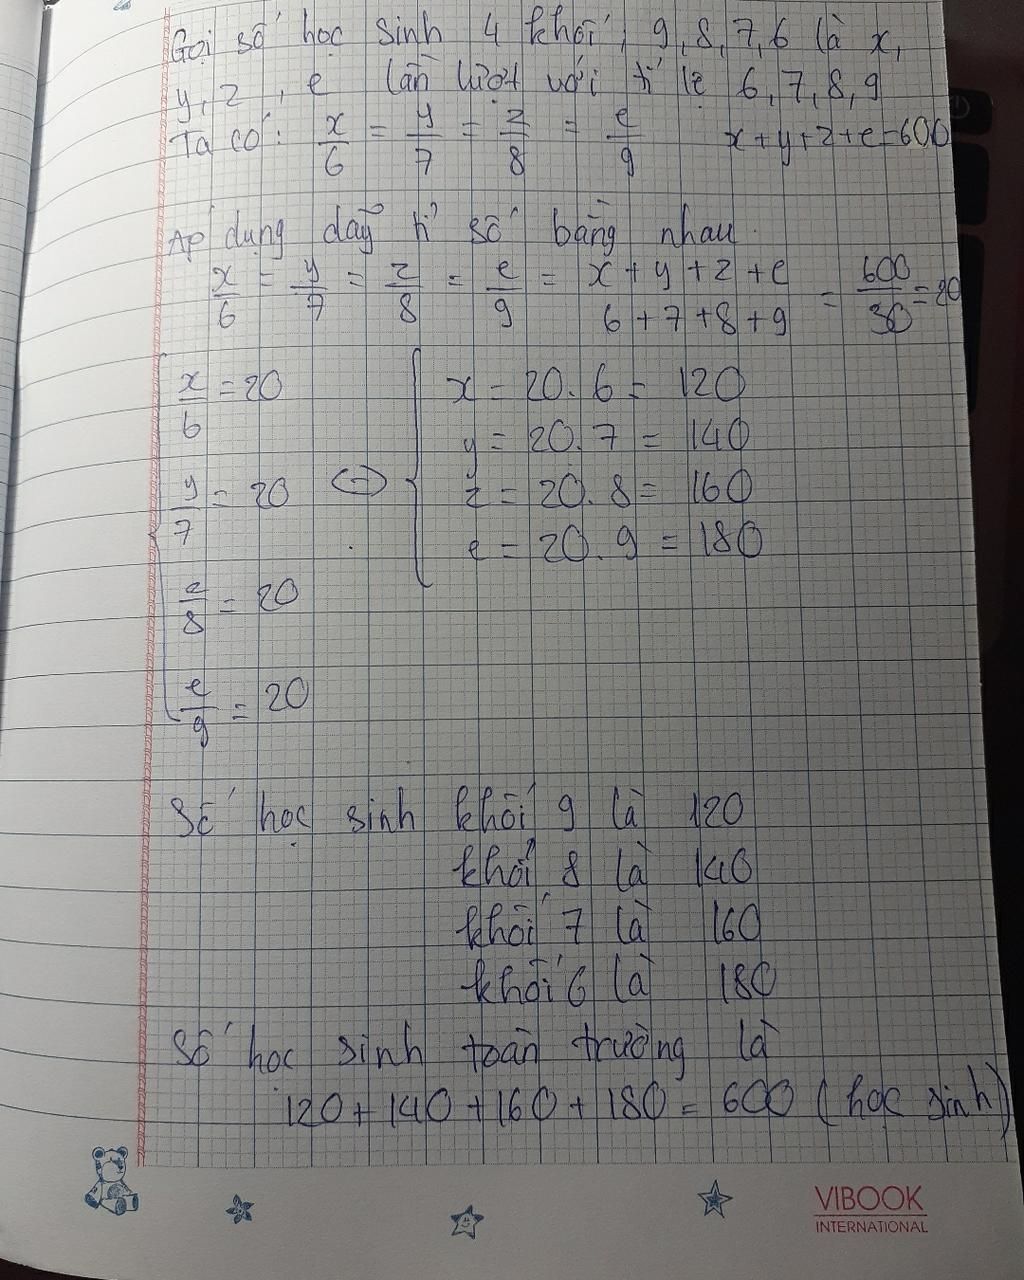 Gọi số học sinh 4 khối 9, 8, 7, 6 là x,
y, z, e lần lượt với tỉ lệ 6, 7, 8, 9
Ta có: x/6 = y/7 = z/8 = e/9 x+y+z+e=600
Áp dụng dãy tỉ số bằng nhau.
x/6 = y/7 = z/8 = e/9 = x+y+z+e/6+7+8+9 = 600/30 = 20
x/6 = 20
y/7 = 20
z/8 = 20
e/9 = 20
⇔
x = 20.6 = 120
y = 20.7 = 140
z = 20.8 = 160
e = 20.9 = 180
Số học sinh khối 9 là 120
khối 8 là 140
khối 7 là 160
khối 6 là 180
Số học sinh toàn trường là
120+140+160+180=600 (học sinh)
VIBOOK
INTERNATIONAL